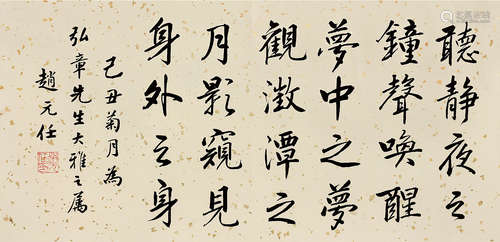 聽静夜之
鐘聲喚醒
夢中之夢
觀澂潭之
月影窺見
身外之身
己丑菊月為
弘章先生大雅之属
趙元任